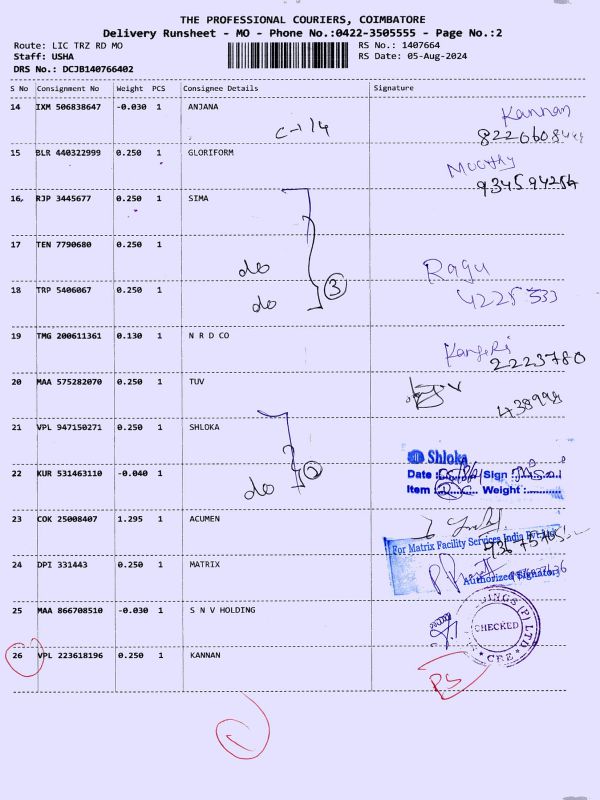 THE PROFESSIONAL COURIERS, COIMBATORE
Delivery Runsheet - MO - Phone No.:0422-3505555 - Page No.:2
Route: LIC TRZ RD MO
RS No.: 1407664
Staff: USHA
RS Date: 05-Aug-2024
DRS No.: DCJB140766402
S No Consignment No Weight PCS Consignee Details Signature
14 IXM 506838647 -0.030 1 ANJANA Kannan
15 BLR 440322999 0.250 1 GLORIFORM Moorthy
16 RJP 3445677 0.250 1 SIMA
17 TEN 7790680 0.250 1
do 3 Ragu
18 TRP 5406067 0.250 1
do
19 TMG 200611361 0.130 1 N R D CO
2223780
20 MAA 575282070 0.250 1 TUV
438998
21 VPL 947150271 0.250 1 SHLOKA
Shloka
22 KUR 531463110 -0.040 1
Date Sign
do 2 Item Weight
23 COK 25008407 1.295 1 ACUMEN
For Matrix Facility Services India Pvt Ltd
24 DPI 331443 0.250 1 MATRIX
Authorized Signatory
25 MAA 866708510 -0.030 1 S N V HOLDING
CHECKED
26 VPL 223618196 0.250 1 KANNAN